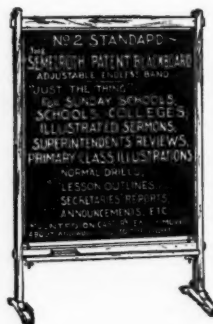 No 2 STANDARD ~
THE
SEMELROTH PATENT BLACKBOARD
ADJUSTABLE ENDLESS BAND.
"JUST THE THING"
FOR SUNDAY SCHOOLS,
SCHOOLS, COLLEGES,
ILLUSTRATED SERMONS,
SUPERINTENDENTS REVIEWS,
PRIMARY CLASS ILLUSTRATIONS
NORMAL DRILLS,
LESSON OUTLINES,
SECRETARIES' REPORTS,
ANNOUNCEMENTS, ETC.
MOUNTED ON